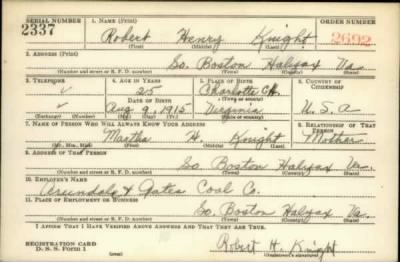 SERIAL NUMBER 1. NAME (Print) ORDER NUMBER
2337 Robert Henry Knight 2692
(First) (Middle) (Last)
2. ADDRESS (Print)
So. Boston Halifax Va.
(Number and street or R. F. D. number) (Town) (County) (State)
3. TELEPHONE 4. AGE IN YEARS 5. PLACE OF BIRTH 6. COUNTRY OF CITIZENSHIP
✓ 25 Charlotte C.H.
DATE OF BIRTH (Town or county)
✓ Aug 2, 1915 Virginia U.S.A
(Exchange) (Number) (Mo.) (Day) (Yr.) (State or country)
7. NAME OF PERSON WHO WILL ALWAYS KNOW YOUR ADDRESS 8. RELATIONSHIP OF THAT PERSON
Martha H. Knight Mother
(Mr., Mrs., Miss) (First) (Middle) (Last)
9. ADDRESS OF THAT PERSON
So. Boston Halifax Va.
(Number and street or R. F. D. number) (Town) (County) (State)
10. EMPLOYER'S NAME
& Yates Coal Co.
11. PLACE OF EMPLOYMENT OR BUSINESS
So. Boston Halifax Va.
(Number and street or R. F. D. number) (Town) (County) (State)
I AFFIRM THAT I HAVE VERIFIED ABOVE ANSWERS AND THAT THEY ARE TRUE.
REGISTRATION CARD
D. S. S. Form 1 Robert H. Knight